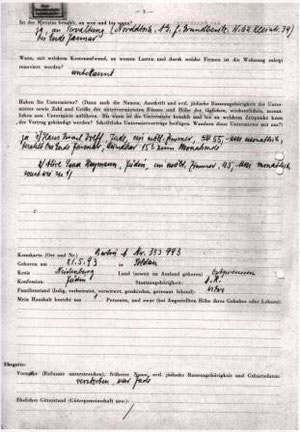 — 3 —
Ist der Mietzins bezahlt, an wen und bis wann?
ja, an Verwaltung (Norddtsch. f. Grundbesitz, 39)
bis Ende Januar
Wann, mit welchem Kostenaufwand, zu wessen Lasten und durch welche Firmen ist die Wohnung zuletzt
renoviert worden?
unbekannt
Haben Sie Untermieter? (Dann auch der Namen, Anschrift und evtl. jüdische Rassezugehörigkeit der Unter-
mieter sowie Zahl und Größe der untervermieteten Räume und Höhe des
Untermiete bezahlt und bis zu welchem Zeitpunkt kann
der Vertrag gekündigt werden? Schriftliche Untermietverträge beifügen. Wandern diese Untermieter mit aus?
ja 1) Hans Israel Jude, ein möbl. Zimmer, 55,- monatlich,
bezahlt bis Ende kündbar 15ten zum Monatsende
2) Sara Heymann, Jüdin, ein möbl. Zimmer, 45,- monatlich
sonst wie zu 1)
Kennkarte (Ort und Nr.) Berlin A Nr. 333 993
Geboren am 21.5.93 in Soldau
Kreis Neidenburg Land (soweit im Ausland geboren) Ostpreussen
Konfession Jüdin Staatsangehörigkeit: D.R.
Familienstand (ledig, verheiratet, verwitwet, geschieden, getrennt lebend): Witwe
Mein Haushalt besteht aus 1 Personen, und zwar (bei Angestellten Höhe ihres Gehaltes oder Lohnes):
Ehegatte:
Vorname (Rufname unterstreichen), früherer Name, evtl. jüdische Rassezugehörigkeit und Geburtsdatum:
verstorben war Jude
Ehelicher Güterstand (Gütergemeinschaft usw.):